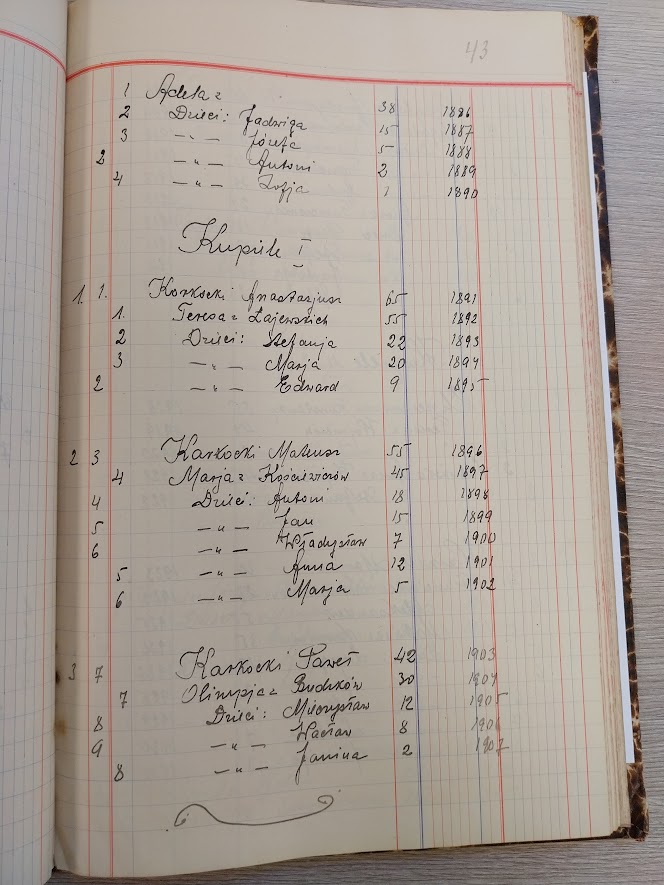 43
1 Adela z 38 1886
2 Dzieci: Jadwiga 15 1887
3 — " — Józefa 5 1888
2 — " — Antoni 2 1889
4 — " — Zofja 1 1890
Kupile I
1. 1. Korkocki Anastazjusz 65 1891
1. Teresa z Zajewskich 55 1892
2 Dzieci: Stefanja 22 1893
3 — " — Marja 20 1894
2 — " — Edward 9 1895
2 3 Karkocki Mateusz 55 1896
4 Marja z 45 1897
4 Dzieci: Antoni 18 1898
5 — " — Jan 15 1899
6 — " — Władysław 7 1900
5 — " — Anna 12 1901
6 — " — Marja 5 1902
3 7 Karkocki Paweł 42 1903
7 Olimpja z Dudków 30 1904
8 Dzieci: Mieczysław 12 1905
9 — " — Wacław 8 1906
8 — " — Janina 2 1907